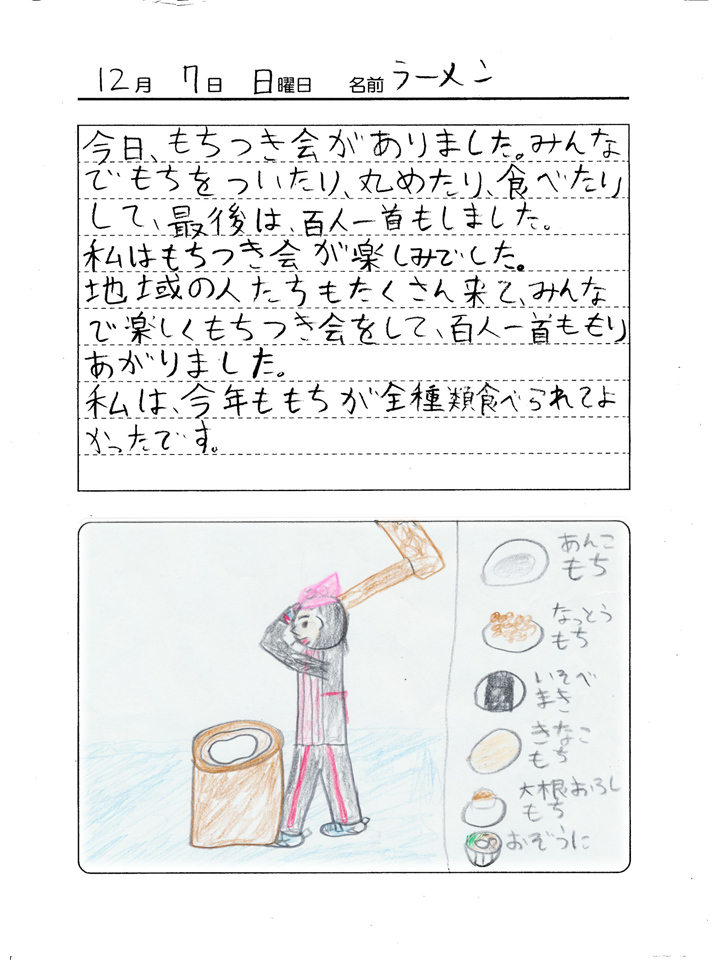 12月 7日 日曜日 名前 ラーメン
今日、もちつき会がありました。みんな
でもちをついたり、丸めたり、食べたり
して、最後は、百人一首もしました。
私はもちつき会が楽しみでした。
地域の人たちもたくさん来て、みんな
で楽しくもちつき会をして、百人一首ももり
あがりました。
私は、今年ももちが全種類食べられてよ
かったです。
あんこ
もち
なっとう
もち
いそべ
まき
きなこ
もち
大根おろし
もち
おぞうに